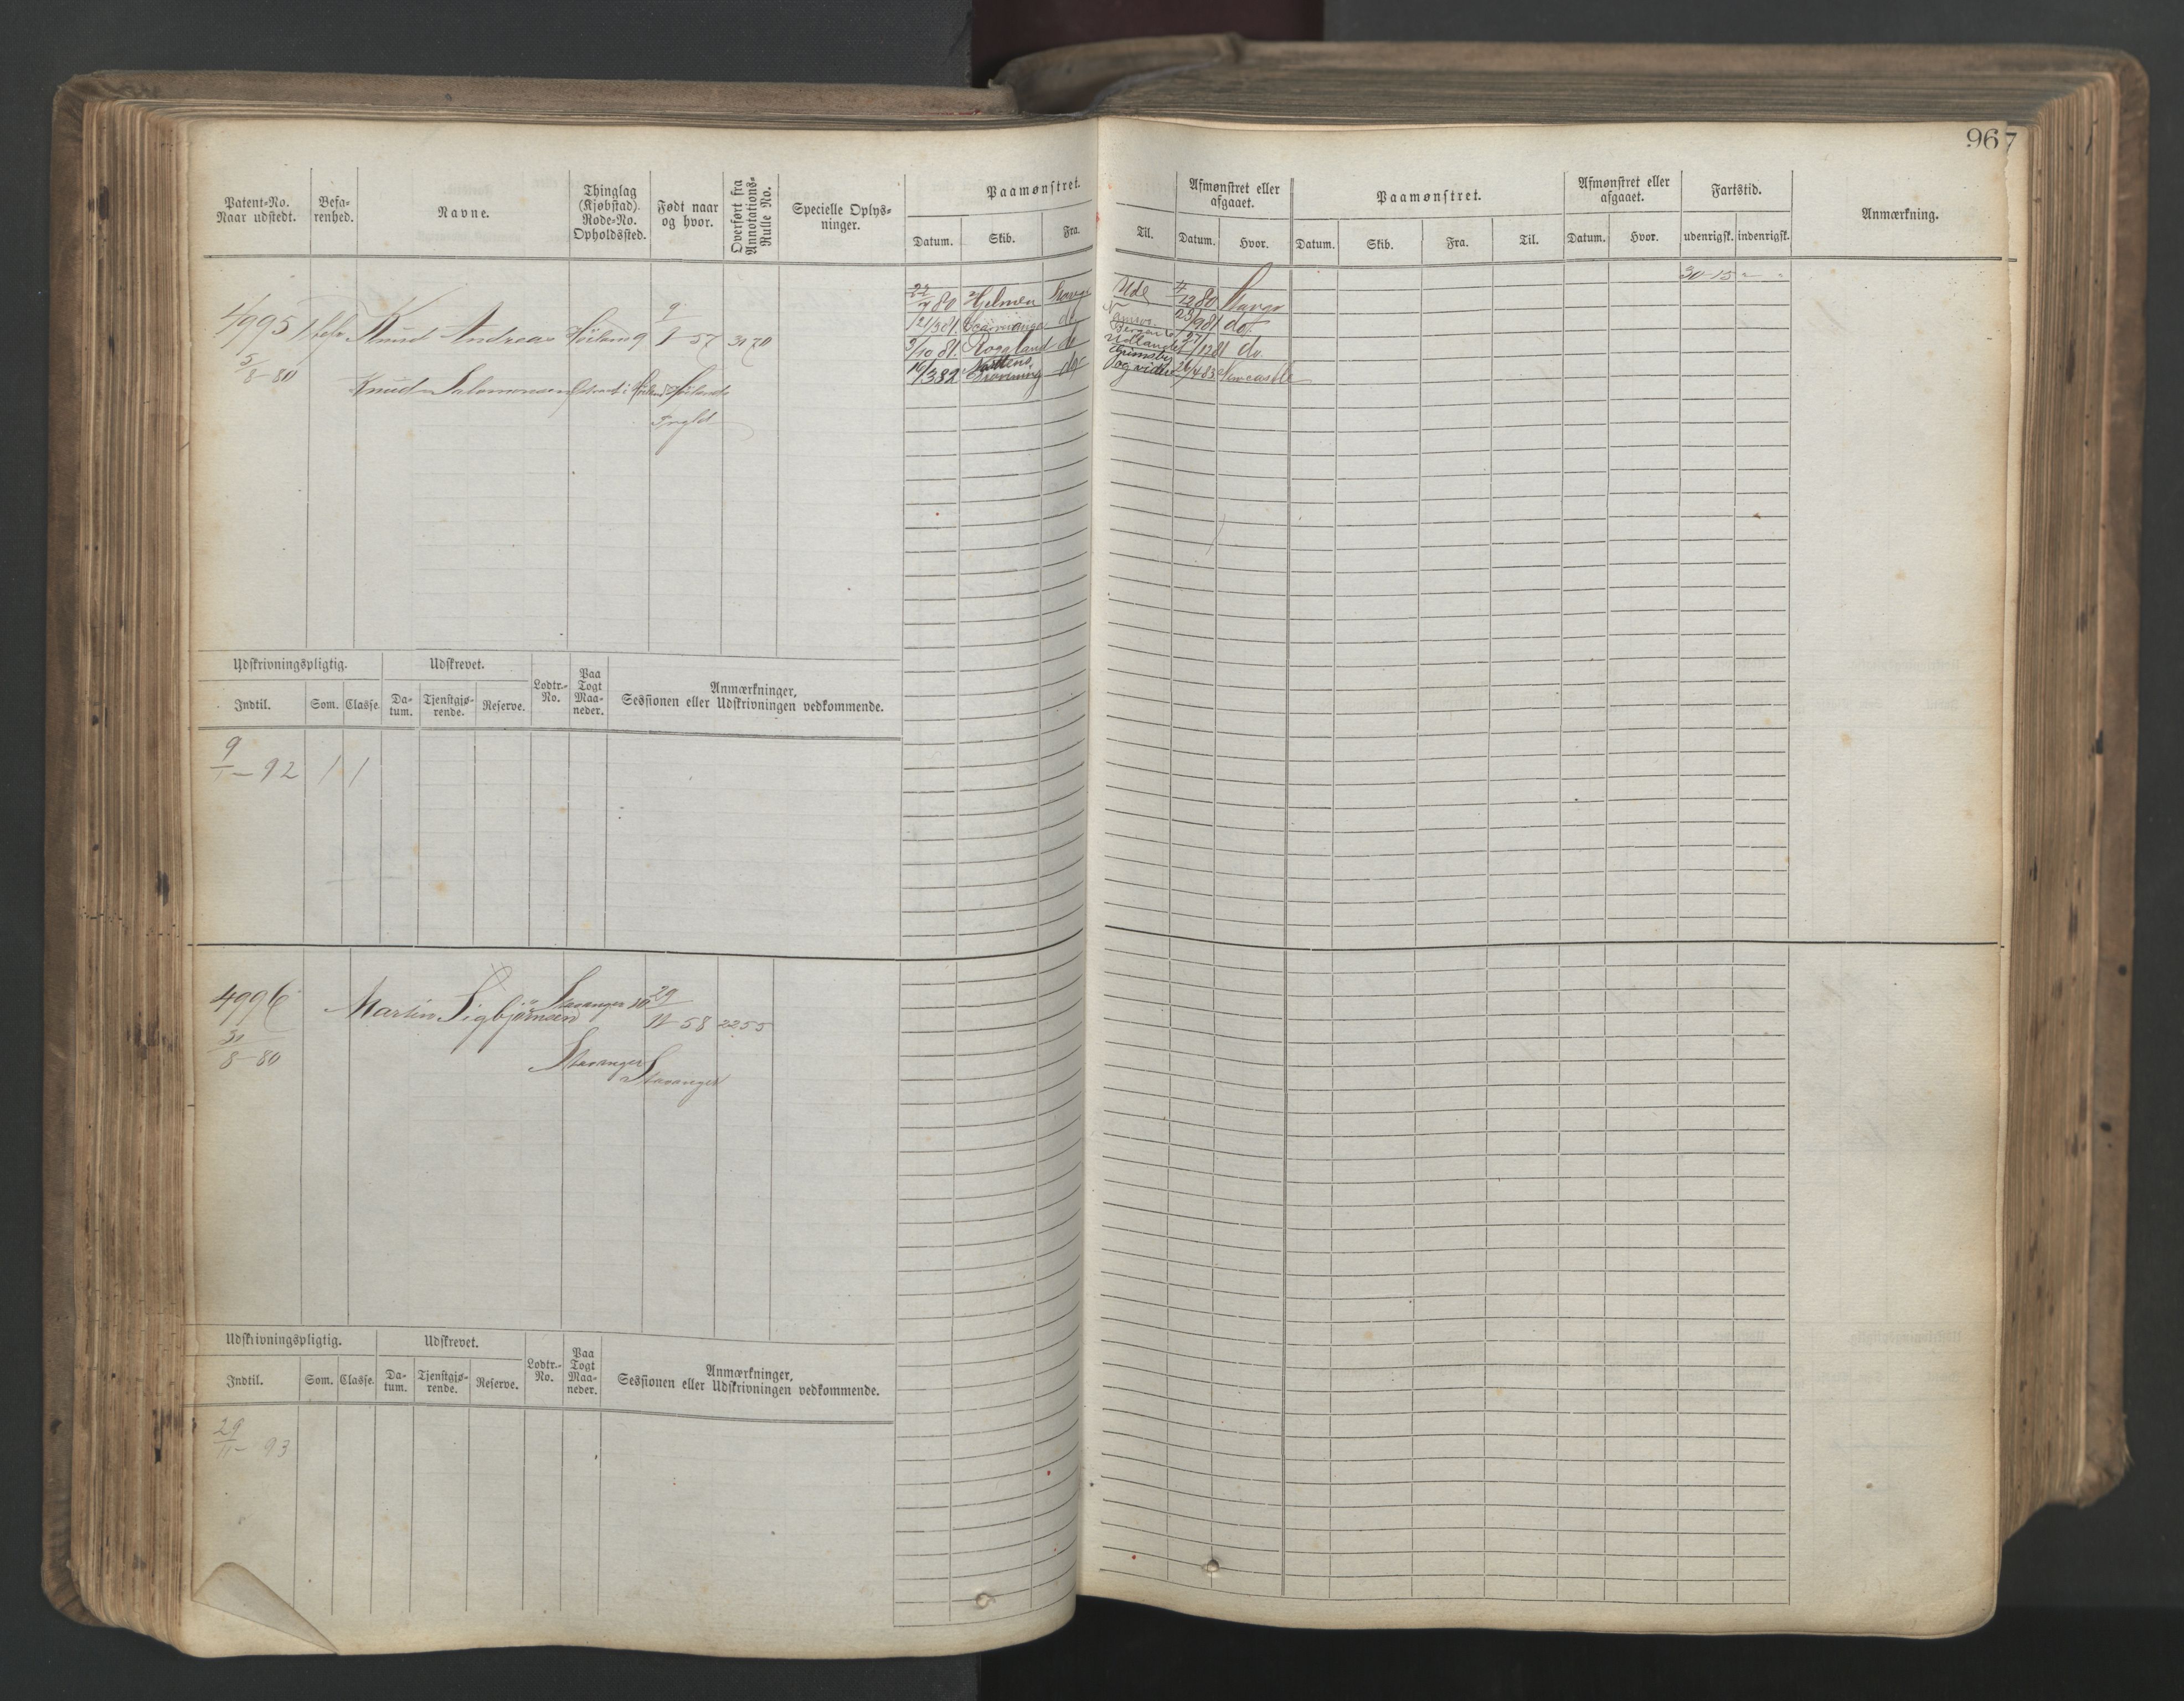 967
Patent-No. Naar udstedt.
Befa-renhed.
Navne.
Thinglag (Kjøbstad). Rode-No. Opholdssted.
Født naar og hvor.
Overført fra Annotations-Rulle No.
Specielle Oplys-ninger.
Paamønstret.
Datum. Skib. Fra. Til.
Afmønstret eller afgaaet.
Datum. Hvor.
Paamønstret.
Datum. Skib. Fra. Til.
Afmønstret eller afgaaet.
Datum. Hvor.
Fartstid.
udenrigsk. indenrigsk.
Anmærkning.
4995
5/8-80
Knud Andreas
Knud Salomonsen
9
9/1-57
3170
80 Hjelmen Ude 4/12 80
do 23/9 81 do.
9/10 81. Rogaland do Udlandet 27/12 81 do.
do Grimsby og videre 83 Newcastle
30-15
Udskrivningspligtig.
Indtil. Som. Classe.
Udskrevet.
Da-tum. Tjenstgjø-rende. Reserve.
Lodtr.-No.
Paa Togt Maa-neder.
Anmærkninger, Sessionen eller Udskrivningen vedkommende.
9/1-92 1 1
4996
31/8-80
Martin Sigbjørnsen
Stavanger 10
Stavanger
29/11 58
Stavanger
2255
Udskrivningspligtig.
Indtil. Som. Classe.
Udskrevet.
Da-tum. Tjenstgjø-rende. Reserve.
Lodtr.-No.
Paa Togt Maa-neder.
Anmærkninger, Sessionen eller Udskrivningen vedkommende.
29/11-93